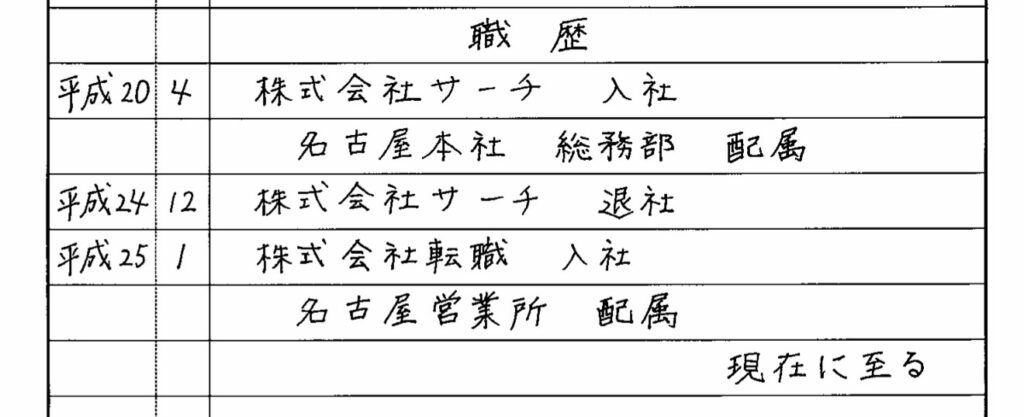 職 歴
平成20 4 株式会社サーチ 入社
名古屋本社 総務部 配属
平成24 12 株式会社サーチ 退社
平成25 1 株式会社転職 入社
名古屋営業所 配属
現在に至る